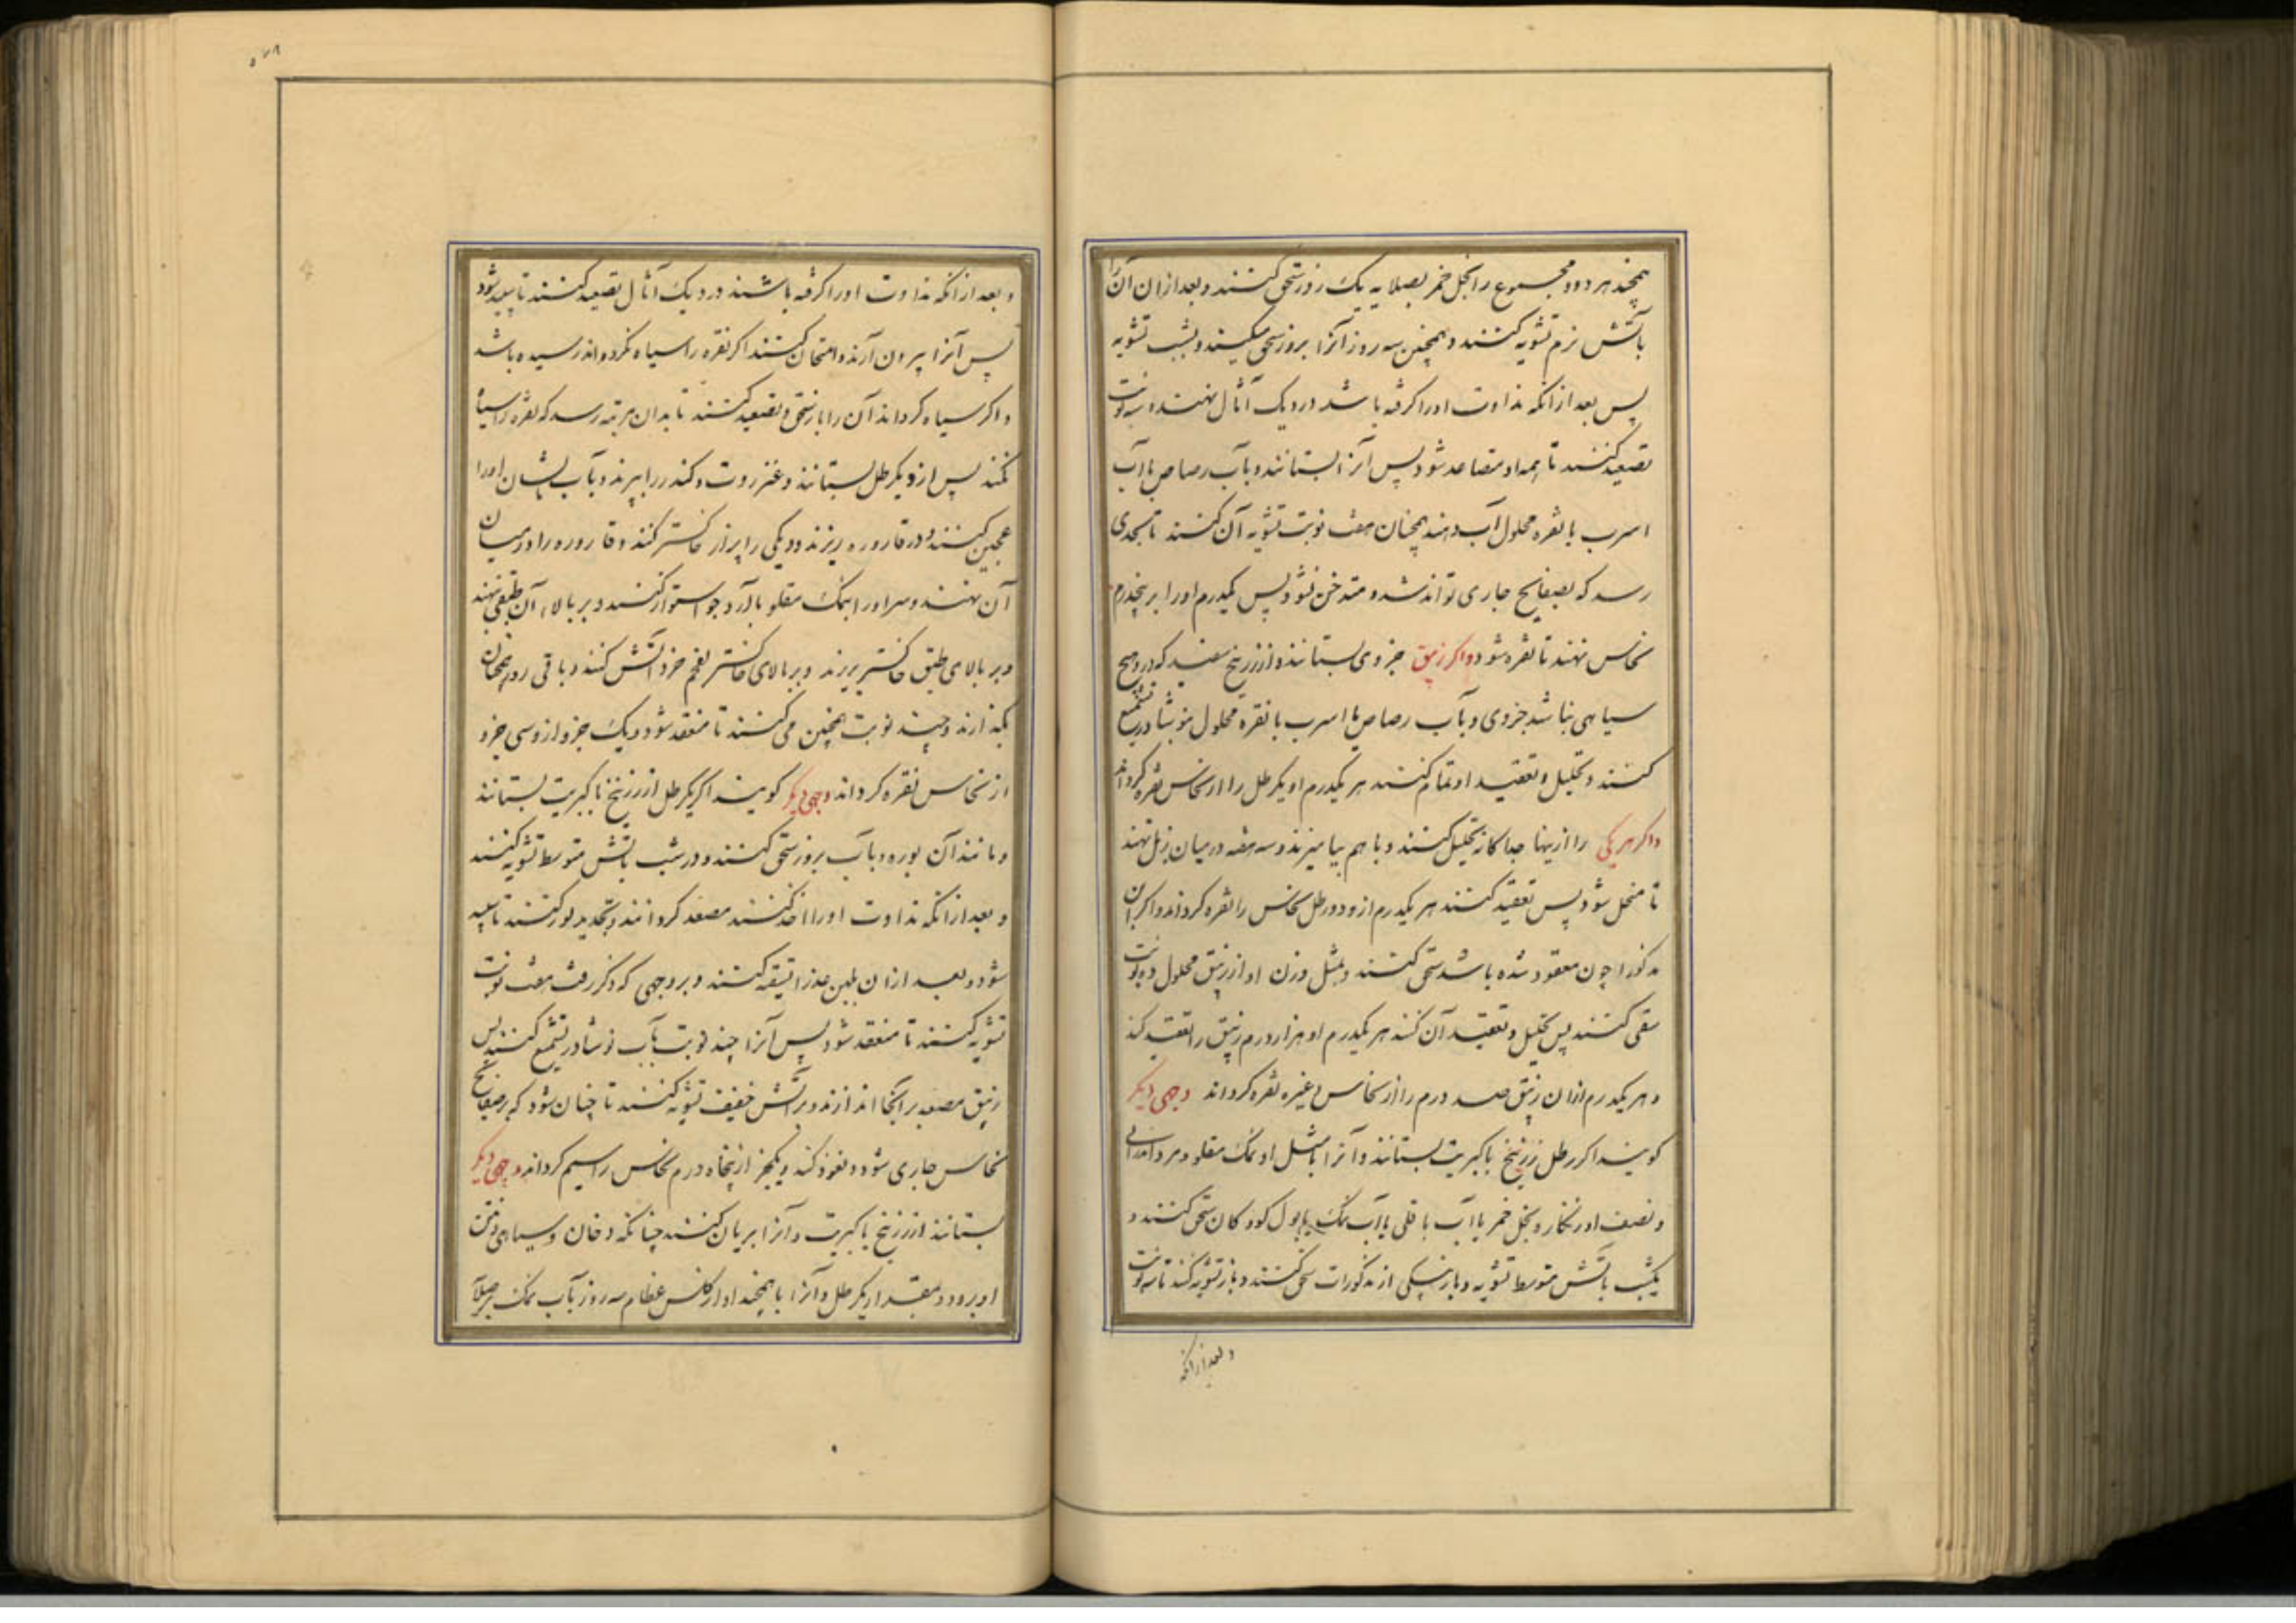 همچند هر دو و مجموع را بخل خمر بصلایه یک روز سحق کنند و بعد ازان آن را
بآتش نرم تشویه کنند و همچنین سه روز آنرا بروز سحق میکنند و بشب تشویه
پس بعد از انکه نداوت اورا گرفه باشد در دیک آثال نهند و سه نوبت
تصعید کنند تا همه او متصاعد شود پس آنرا بستانند و بآب رصاص یا آب
اسرب یا نقره محلول آب دهند همچنان هفت نوبت تشویه آن کنند تا بحدی
رسد که بصفایح جاری تواند شد و متدخن نشود پس یکدرم اورا بر پنجدرم
نحاس نهند تا نقره شود واکر زیبق جزوی بستانند و از زرنیخ سفید که درو هیچ
سیاهی نباشد جزوی و بآب رصاص یا اسرب یا نقره محلول بنوشادر تشمیع
کنند و تحلیل و تعقید او تمام کنند هر یکدرم او یکرطل را از نحاس نقره کرداند
واکر هر یکی را ازینها جداکانه تحلیل کنند و با هم بیامیزند و سه هفته در میان زبل نهند
تا منحل شود پس تعقید کنند هر یکدرم ازو دو رطل نحاس را نقره کرداند واکر آن
مذکور را چون معقود شده باشد سحق کنند و بمثل وزن او از زیبق محلول ده نوبت
سقی کنند پس تحلیل و تعقید آن کنند هر یکدرم او هزار درم زیبق را تعقید کند
و هر یکدرم ازان زیبق صد درم را از نحاس و غیره نقره کرداند وجهی دیکر
کویند اکر رطل زرنیخ یا کبریت بستانند و آنرا بامثل او نمک مقلو و مرداسنک
و نصف او زنکار و بخل خمر یا آب باقلی یا آب نمک یا بول کودکان سحق کنند و
یکشب بآتش متوسط تشویه و باز بیکی از مذکورات سحق کنند و باز تشویه کنند تا سه نوبت
و بعد از انکه
و بعد از انکه نداوت اورا گرفه باشند در دیک آثال تصعید کنند تا سپید شود
پس آنرا بیرون آرند و امتحان کنند اکر نقره را سیاه نکرداند رسیده باشد
و اکر سیاه کرداند آن را باز سحق و تصعید کنند تا بدان مرتبه رسد که نقره را سیاه
نکند پس ازو یکرطل بستانند و عنزروت و کندر را بپزند و بآب ایشان اورا
عجین کنند و در قاروره ریزند و دیکی را پر از خاکستر کنند و قاروره را در میان
آن نهند و سر اورا بنمک مقلو بآرد جو استوار کنند و بر بالاء آن طبقی نهند
و بر بالای طبق خاکستر بریزند و بر بالای خاکستر بفحم خرد آتش کنند و باقی روز همچنان
بکذارند و چند نوبت همچنین می کنند تا منعقد شود و یک جزو ازو سی جزو
از نحاس نقره کرداند وجهی دیکر کویند اکر یکرطل از زرنیخ یا کبریت بستانند
و مانند آن بوره و بآب بروز سحق کنند و در شب بآتش متوسط تشویه کنند
و بعد از انکه نداوت اورا اخذ کنند مصعد کردانند و تجدید او کنند تا سپید
شود و بعد ازان بلبن عذرا تسقیه کنند و بر وجهی که ذکر رفت هفت نوبت
تشویه کنند تا منعقد شود پس آنرا چند نوبت بآب نوشادر تشمیع کنند پس
زیبق مصعد بر آنجا اندازند و بر آتش خفیف تشویه کنند تا چنان شود که بر صفایح
نحاس جاری شود و نفوذ کند و یکجزو از پنجاه درم نحاس را سیم کرداند وجهی دیکر
بستانند از زرنیخ یا کبریت و آنرا بریان کنند چنانکه دخان و سیاهی و نتن
او برود و مقدار یکرطل و آنرا با همچند او از کلس عظام سه روز بآب نمک بر صلایه